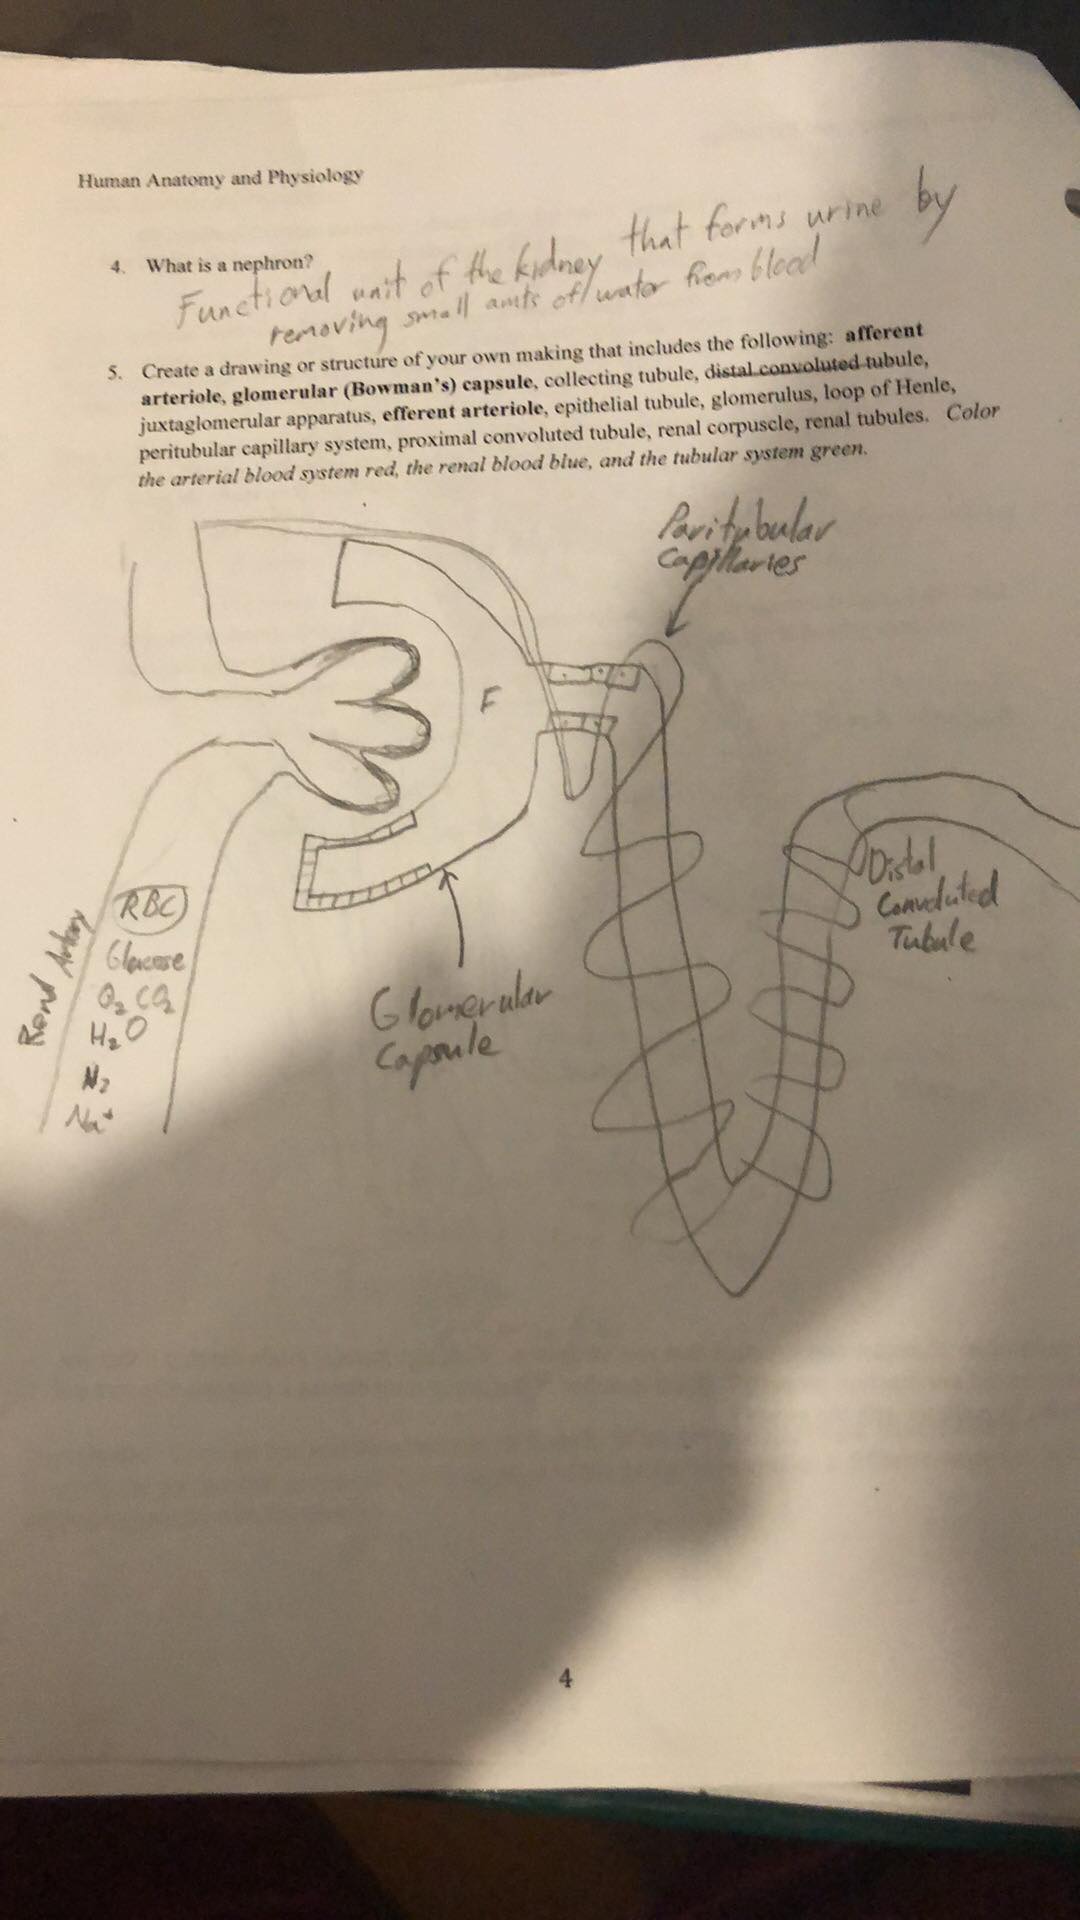 Human Anatomy and Physiology
4. What is a nephron?
Functional unit of the kidney that forms urine by
removing small amts of water from blood
5. Create a drawing or structure of your own making that includes the following: afferent
arteriole, glomerular (Bowman's) capsule, collecting tubule, distal convoluted tubule,
juxtaglomerular apparatus, efferent arteriole, epithelial tubule, glomerulus, loop of Henle,
peritubular capillary system, proximal convoluted tubule, renal corpuscle, renal tubules. Color
the arterial blood system red, the renal blood blue, and the tubular system green.
Paritubular
Capillaries
F
Distal
Convoluted
Tubule
Renal Artery
RBC
Glucose
O₂ CO₂
H₂O
N₂
Na⁺
Glomerular
Capsule
4